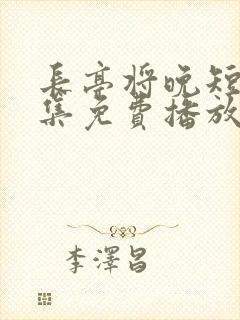 長亭將晚短
集免費播放
李澤昌